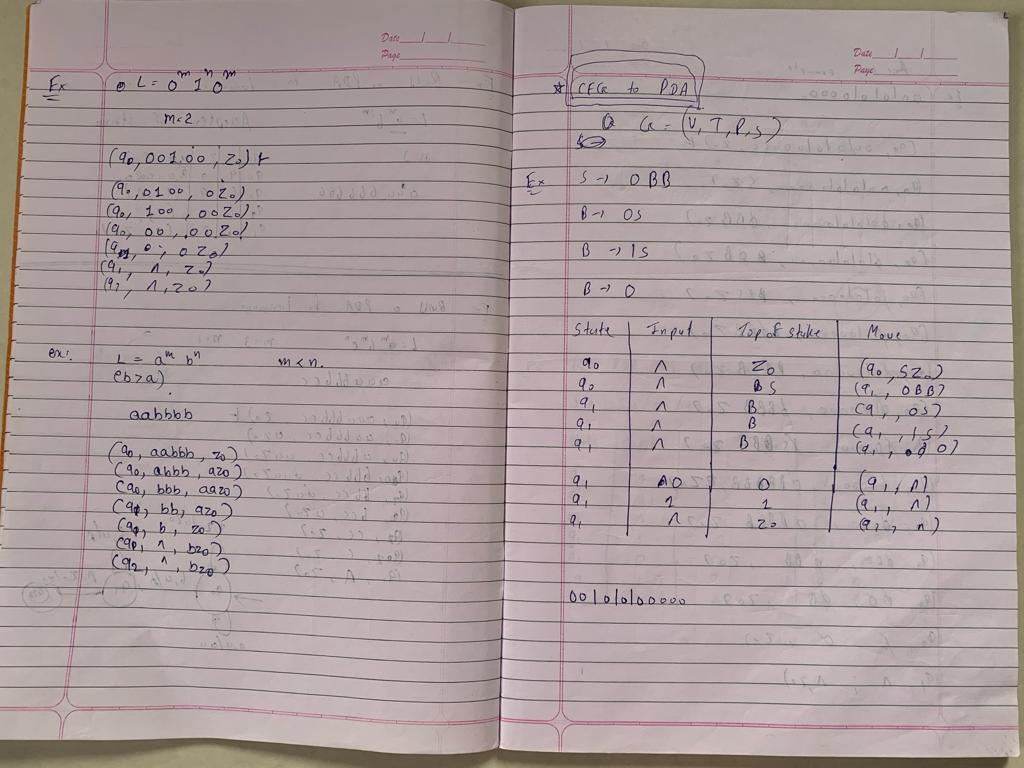 Date
Page
Ex L = 0^m 1^n 0^m
m=2
(q0, 00100, Z0) ⊢
(q0, 0100, 0Z0)
(q0, 100, 00Z0)
(q0, 00, 00Z0)
(q1, 0, 0Z0)
(q1, ∧, Z0)
∧, Z0)
ex: L = a^m b^n m<n.
(b>a)
aabbbb
(q0, aabbb, z0)
(q0, abbb, az0)
(q0, bbb, aaz0)
bb, az0)
b, z0)
∧, bz0)
(q2, ∧, bz0)
Date
Page
* CFG to PDA
G = (V, T, P, S)
Ex S → 0BB
B → 0S
B → 1S
B → 0
State Input Top of stake Move
q0 ∧ Z0 (q0, SZ0)
q0 ∧ S (q1, 0BB)
q1 ∧ B (q1, 0S)
q1 ∧ B (q1, 1S)
q1 ∧ B (q1, 0)
q1 0 0 (q1, ∧)
q1 1 1 (q1, ∧)
q1 ∧ Z0 (q1, ∧)
001010100000